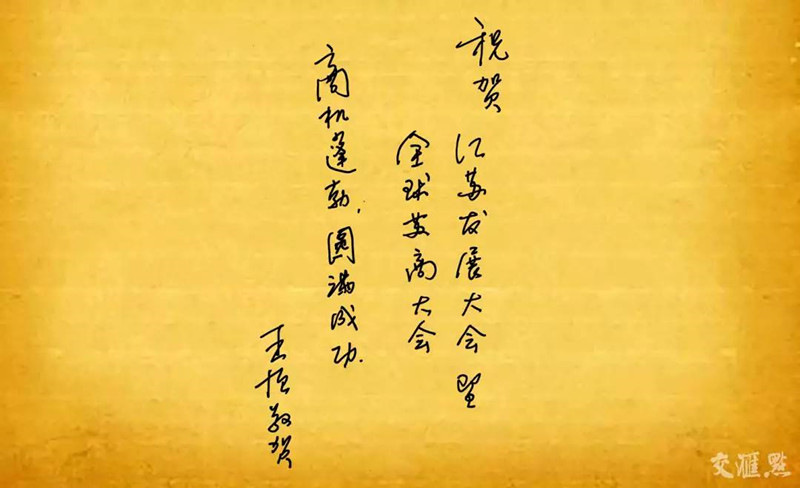 祝贺
江苏发展大会暨
全球苏商大会
商机蓬勃，圆满成功.
王恒敬贺
交汇點